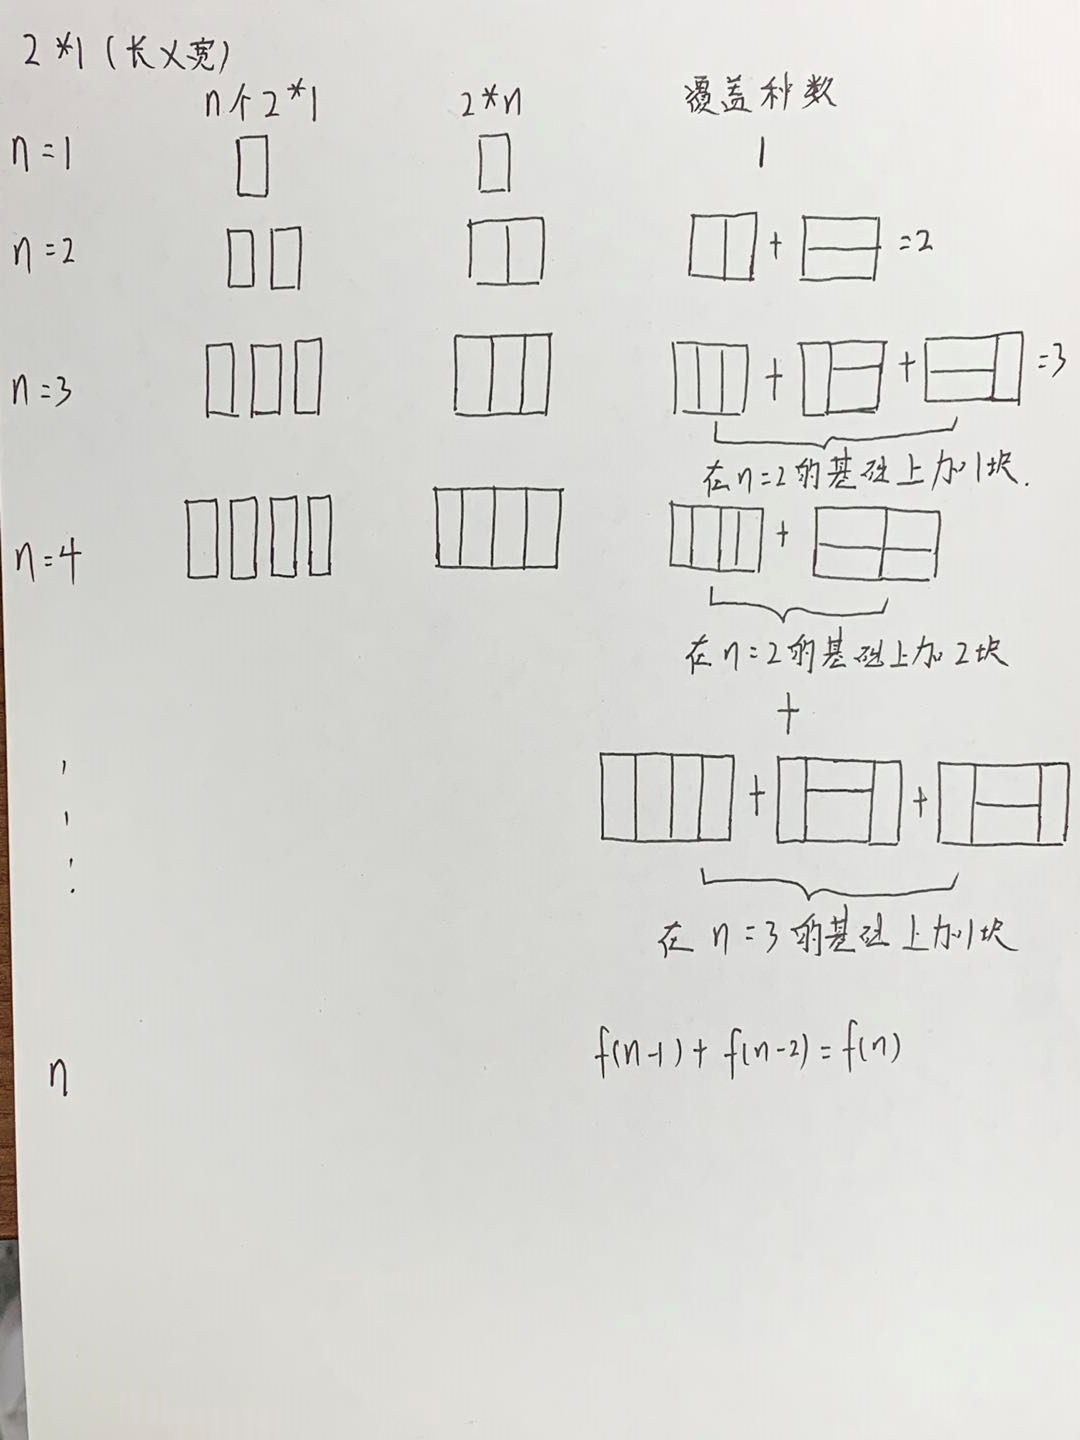 2*1(长×宽)
n个2*1 2*n 覆盖种数
n=1 1
n=2 + =2
n=3 + + =3
在n=2的基础上加1块.
n=4 +
在n=2的基础上加2块
+
+ +
在n=3的基础上加1块
n f(n-1)+f(n-2)=f(n)